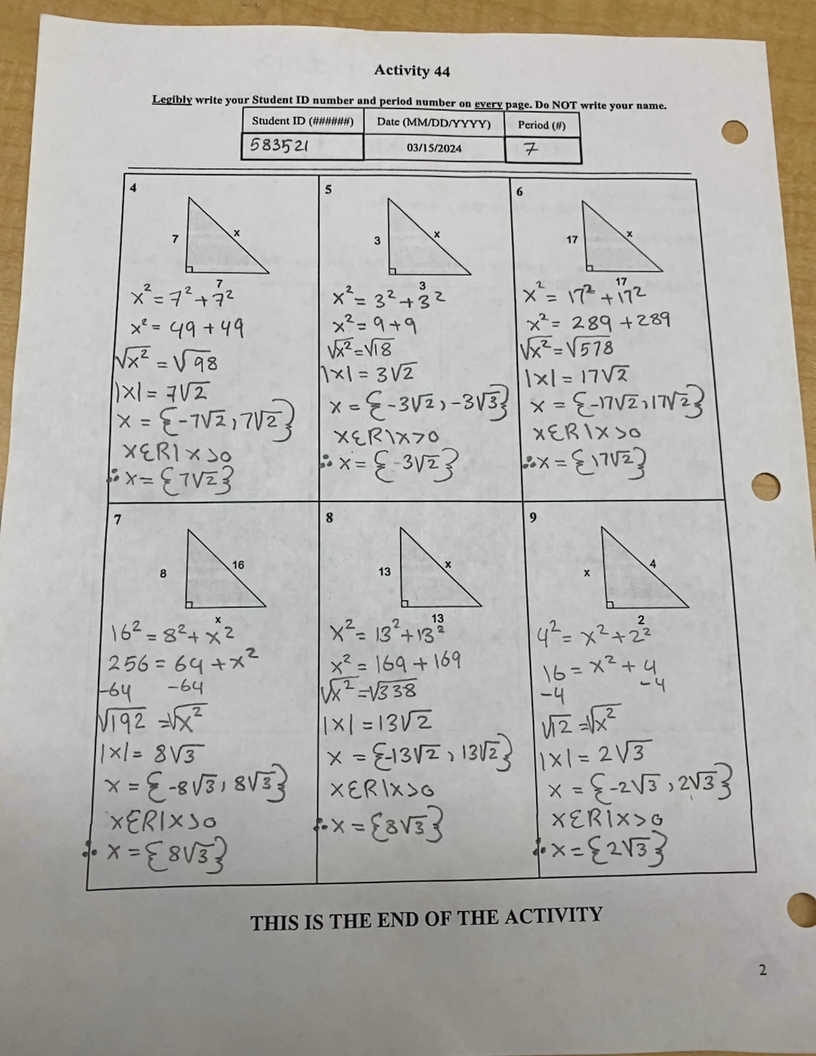 Activity 44
Legibly write your Student ID number and period number on every page. Do NOT write your name.
Student ID (######) Date (MM/DD/YYYY) Period (#)
583521 03/15/2024 7
4
7
x
7
x² = 7² + 7²
x² = 49 + 49
√x² = √98
|x| = 7√2
x = {-7√2, 7√2}
xεR|x>0
∴ x = {7√2}
5
3
x
3
x² = 3² + 3²
x² = 9 + 9
√x² = √18
|x| = 3√2
x = {-3√2, -3√3}
xεR|x>0
∴ x = {-3√2}
6
17
x
17
x² = 17² + 17²
x² = 289 + 289
√x² = √578
|x| = 17√2
x = {-17√2, 17√2}
xεR|x>0
∴ x = {17√2}
7
8
16
x
16² = 8² + x²
256 = 64 + x²
-64 -64
√192 = √x²
|x| = 8√3
x = {-8√3, 8√3}
xεR|x>0
∴ x = {8√3}
8
13
x
13
x² = 13² + 13²
x² = 169 + 169
√x² = √338
|x| = 13√2
x = {-13√2, 13√2}
xεR|x>0
∴ x = {8√3}
9
x
4
2
4² = x² + 2²
16 = x² + 4
-4 -4
√12 = √x²
|x| = 2√3
x = {-2√3, 2√3}
xεR|x>0
∴ x = {2√3}
THIS IS THE END OF THE ACTIVITY
2